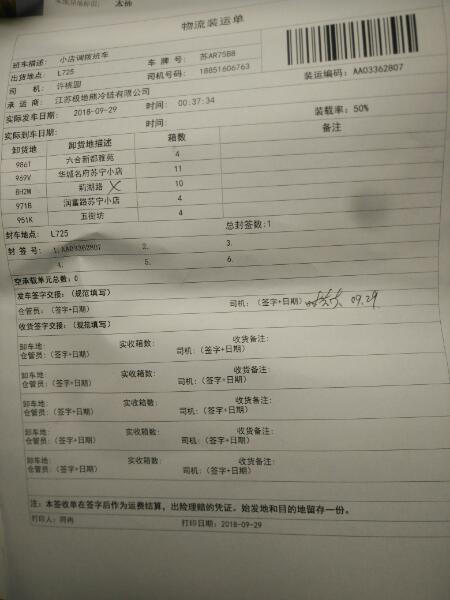 物流装运单
班车描述: 小店调拨班车
出货地点: L725 车 牌 号: 苏AR75B8
司 机: 许桃圆 司机号码: 18851606763
承 运 商: 江苏极地熊冷链有限公司 装运编码: AA03362807
实际发车日期: 2018-09-29 时间: 00:37:34
实际到车日期: 时间: 装载率: 50%
卸货地 卸货地描述 箱数 备注
9861 六合新都雅苑 4
969V 华城名府苏宁小店 11
8H2M 莉湖路 10
971B 润富路苏宁小店 4
951K 五街坊 4
封车地点: L725 总封签数:1
封 签 号: 1.AA03362807 2. 3.
4. 5. 6.
空承载单元总数: 0
发车签字交接:(规范填写)
仓管员:(签字+日期) 司机:(签字+日期) 09.29
收货签字交接:(规范填写)
卸车地: 实收箱数: 收货备注:
仓管员:(签字+日期) 司机:(签字+日期)
卸车地: 实收箱数: 收货备注:
仓管员:(签字+日期) 司机:(签字+日期)
卸车地: 实收箱数: 收货备注:
仓管员:(签字+日期) 司机:(签字+日期)
卸车地: 实收箱数: 收货备注:
仓管员:(签字+日期) 司机:(签字+日期)
注: 本签收单在签字后作为运费结算,出险理赔的凭证。始发地和目的地留存一份。
打印人: 打印日期: 2018-09-29